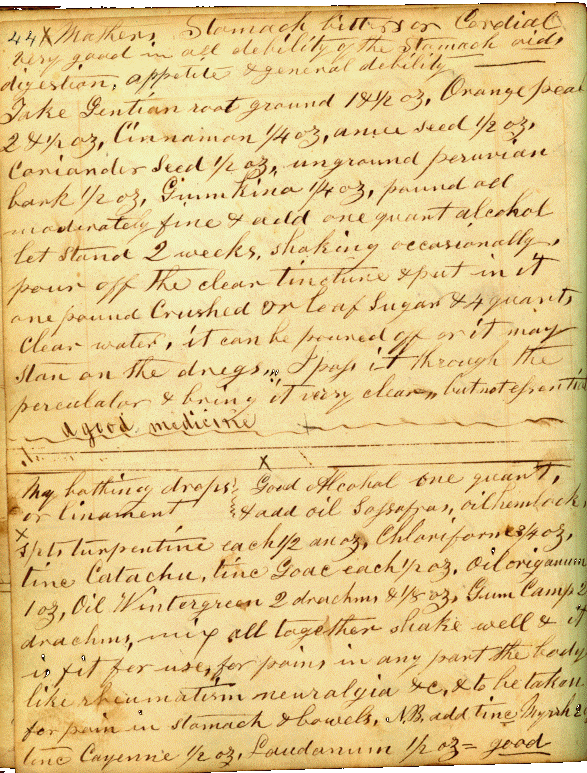 44 X Mathers Stomach bitters or Cordial
very good in all debility of the stomach aids
digestion, appetite & general debility
Take Gentian root ground 1 & 1/2 oz, Orange peal
2 & 1/2 oz, Cinnamon 1/4 oz, anice seed 1/2 oz,
Coriander seed 1/2 oz, unground peruvian
bark 1/2 oz, Gium Kino 1/4 oz, pound all
moderately fine & add one quant alcohol
let stand 2 weeks, shaking occasionally,
pour off the clear tingture & put in it
one pound Crushed or loaf Sugar & 4 quants
Clear water, it can be poured off or it may
stan on the dregs, I pass it through the
perculator & bring it very clear, but not essential
a good medicine
X
My bathing drops Good Alcohol one quant,
or linament & add oil Sassafras, oil hemlock,
X
spts turpentine each 1/2 an oz, Chloriforme 3/4 oz,
tinc Catachu, tinc Goac each 1/2 oz, Oil origanum
1 oz, Oil Wintergreen 2 drachms & 1/8 oz, Gum Camp 2
drachms, mix all together shake well & it
is fit for use, for pains in any part the body
like rheumatism neuralgia &c, & to be taken
for pain in stomach & bowels, N.B. add tinc Myrrh
tinc Cayenne 1/2 oz, Laudanum 1/2 oz = good